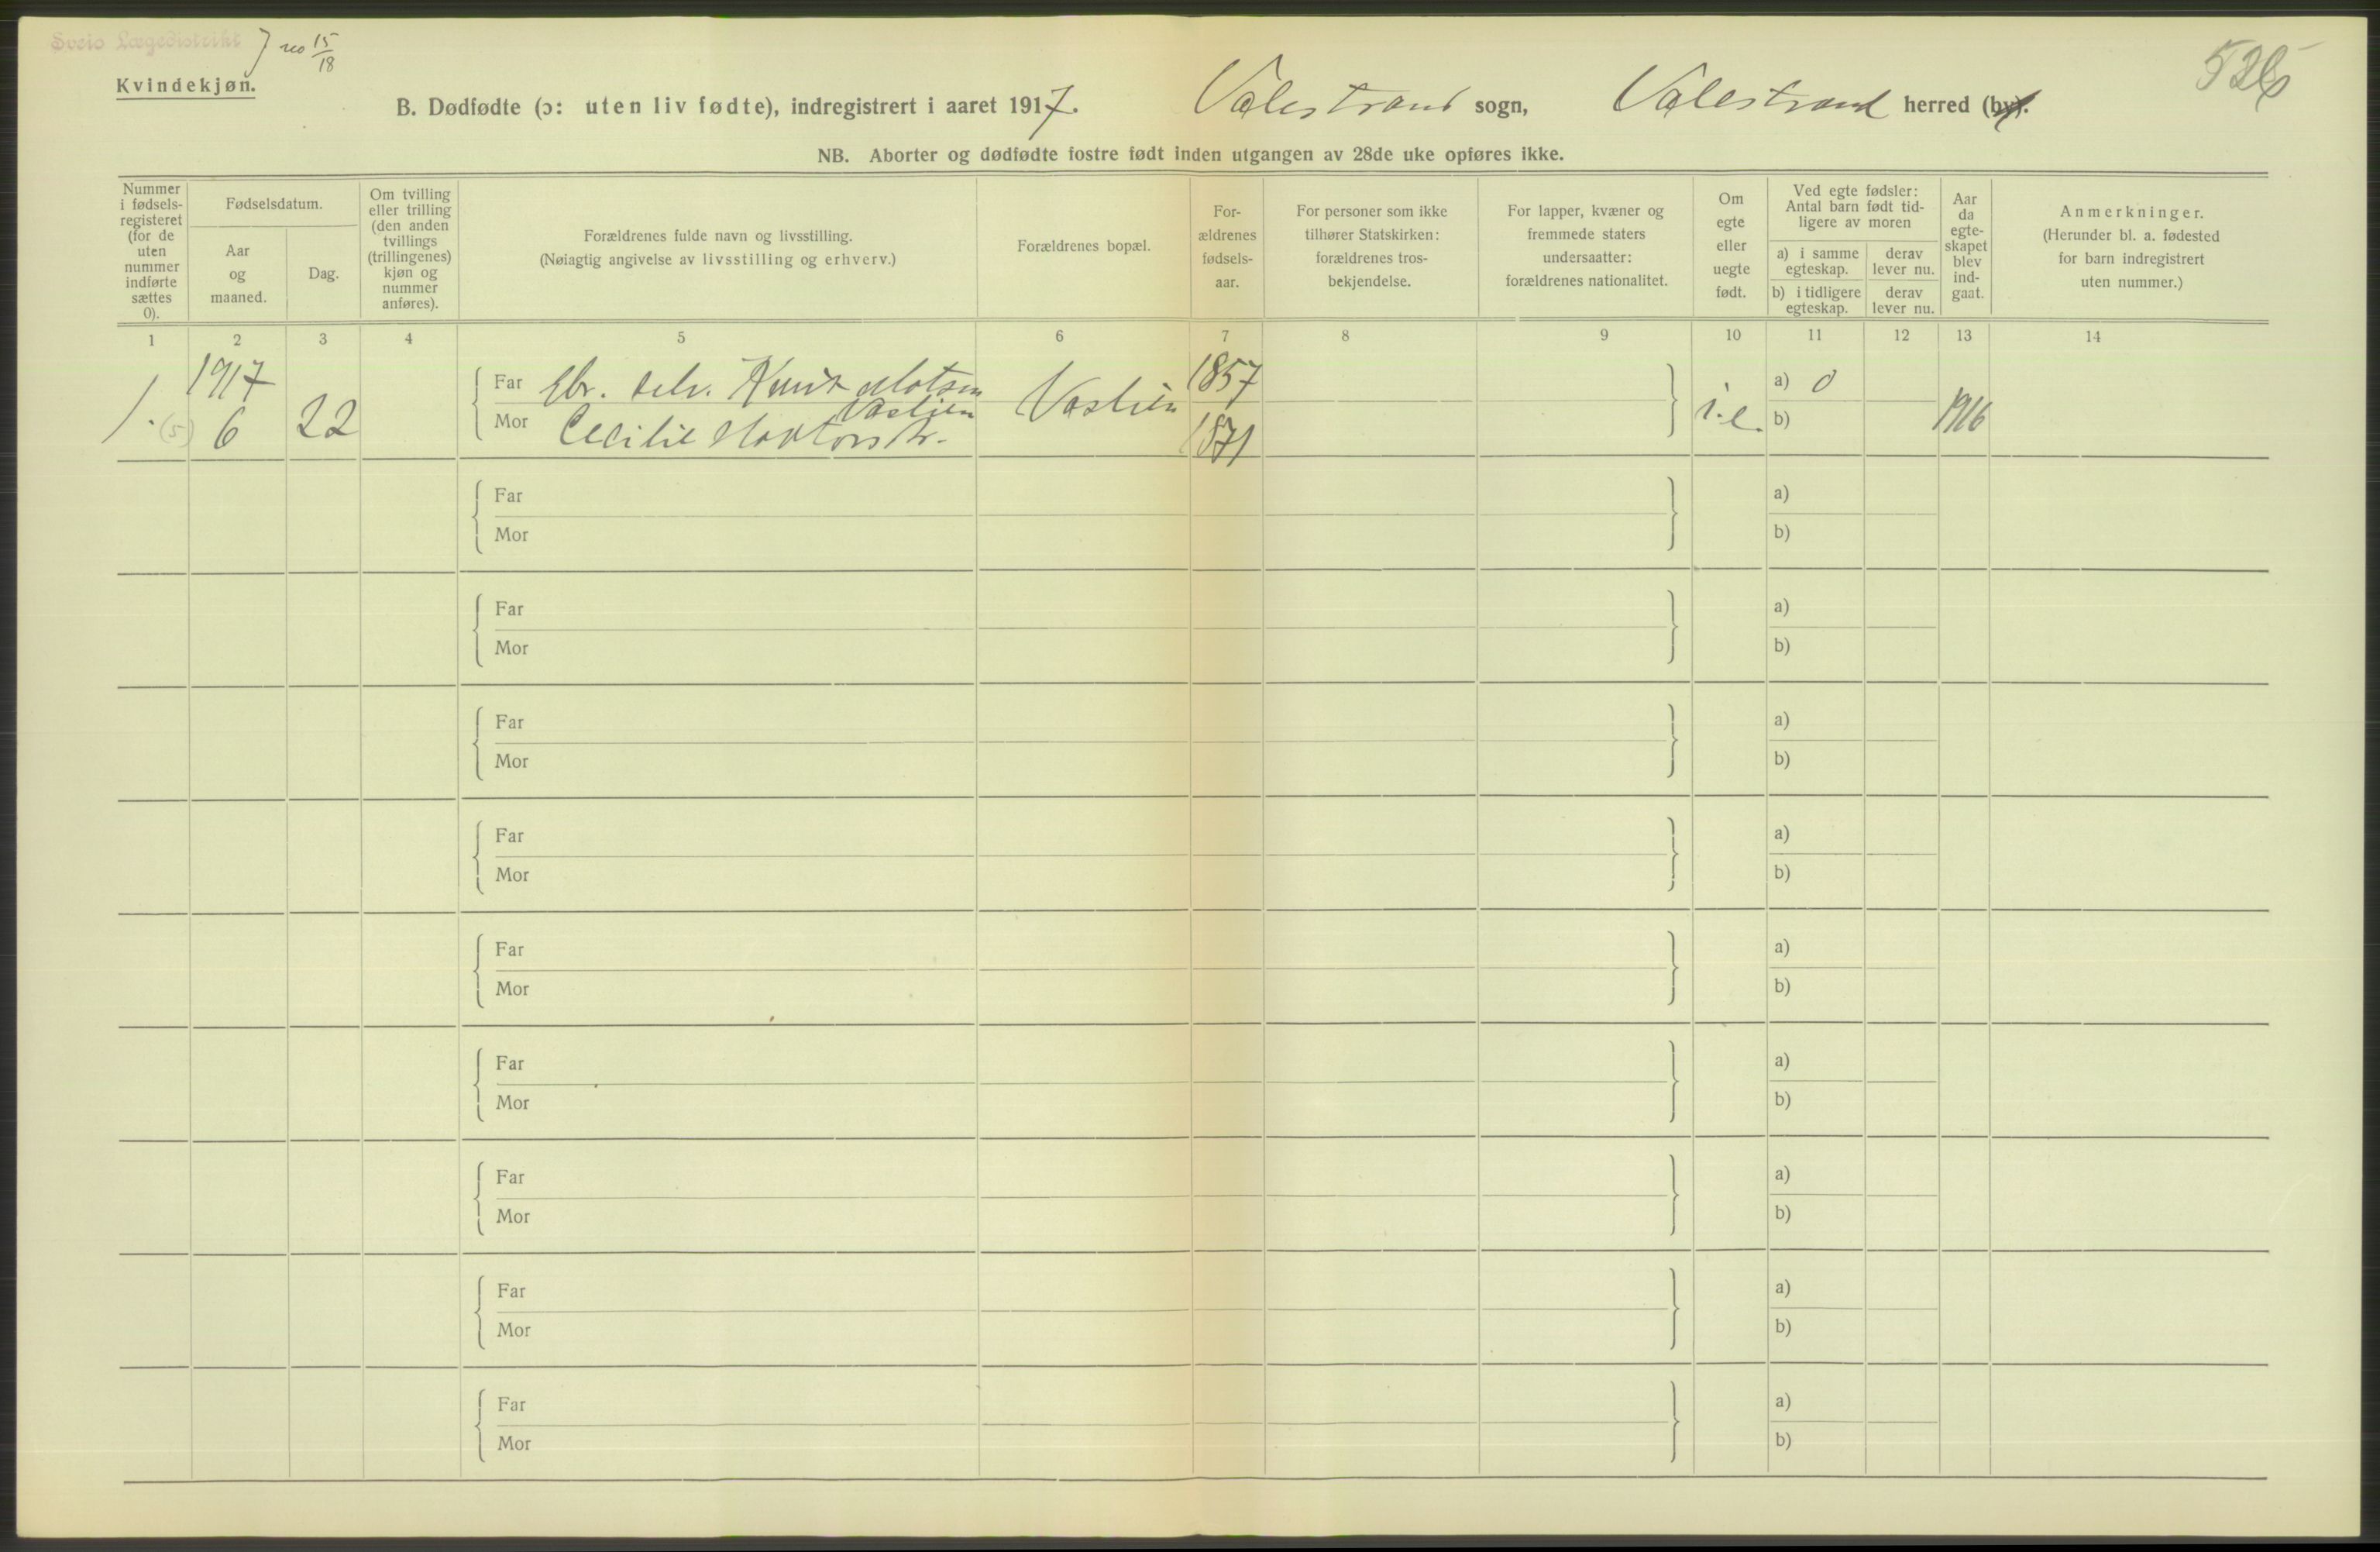 Sveio Lægedistrikt J no 15/18
526
Kvindekjøn.
B. Dødfødte (ɔ: uten liv fødte), indregistrert i aaret 1917. Valestrand sogn, Valestrand herred (by).
NB. Aborter og dødfødte fostre født inden utgangen av 28de uke opføres ikke.
Nummer i fødsels-registeret (for de uten nummer indførte sættes 0).
Fødselsdatum.
Aar og maaned.
Dag.
Om tvilling eller trilling (den anden tvillings (trillingenes) kjøn og nummer anføres).
Forældrenes fulde navn og livsstilling.
(Nøiagtig angivelse av livsstilling og erhverv.)
Forældrenes bopæl.
For-ældrenes fødsels-aar.
For personer som ikke tilhører Statskirken: forældrenes tros-bekjendelse.
For lapper, kvæner og fremmede staters undersaatter: forældrenes nationalitet.
Om egte eller uegte født.
Ved egte fødsler: Antal barn født tid-ligere av moren
a) i samme egteskap.
derav lever nu.
b) i tidligere egteskap.
derav lever nu.
Aar da egte-skapet blev ind-gaat.
Anmerkninger.
(Herunder bl. a. fødested for barn indregistrert uten nummer.)
1 2 3 4 5 6 7 8 9 10 11 12 13 14
1. (5) 1917 6 22
Far Gbr. selv. Knut
Vaslien
Mor Cecilie
Vaslien
1857
1871
i.e.
a) 0
b)
1916
Far a)
Mor b)
Far a)
Mor b)
Far a)
Mor b)
Far a)
Mor b)
Far a)
Mor b)
Far a)
Mor b)
Far a)
Mor b)
Far a)
Mor b)
Far a)
Mor b)